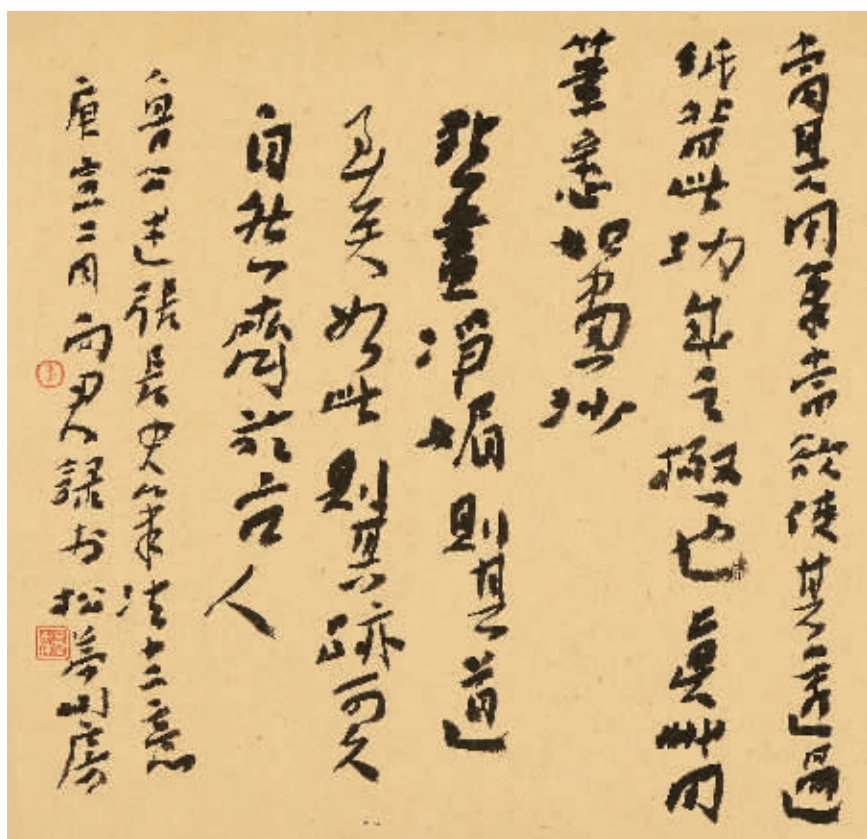 當其用筆常欲使其透過
紙背此功成之極也真草用
筆悉如畫沙
點畫淨媚則其道
至矣如此則其跡可久
自然齊於古人
魯公述張長史筆法十二意
庚寅二月錄於松夢山房